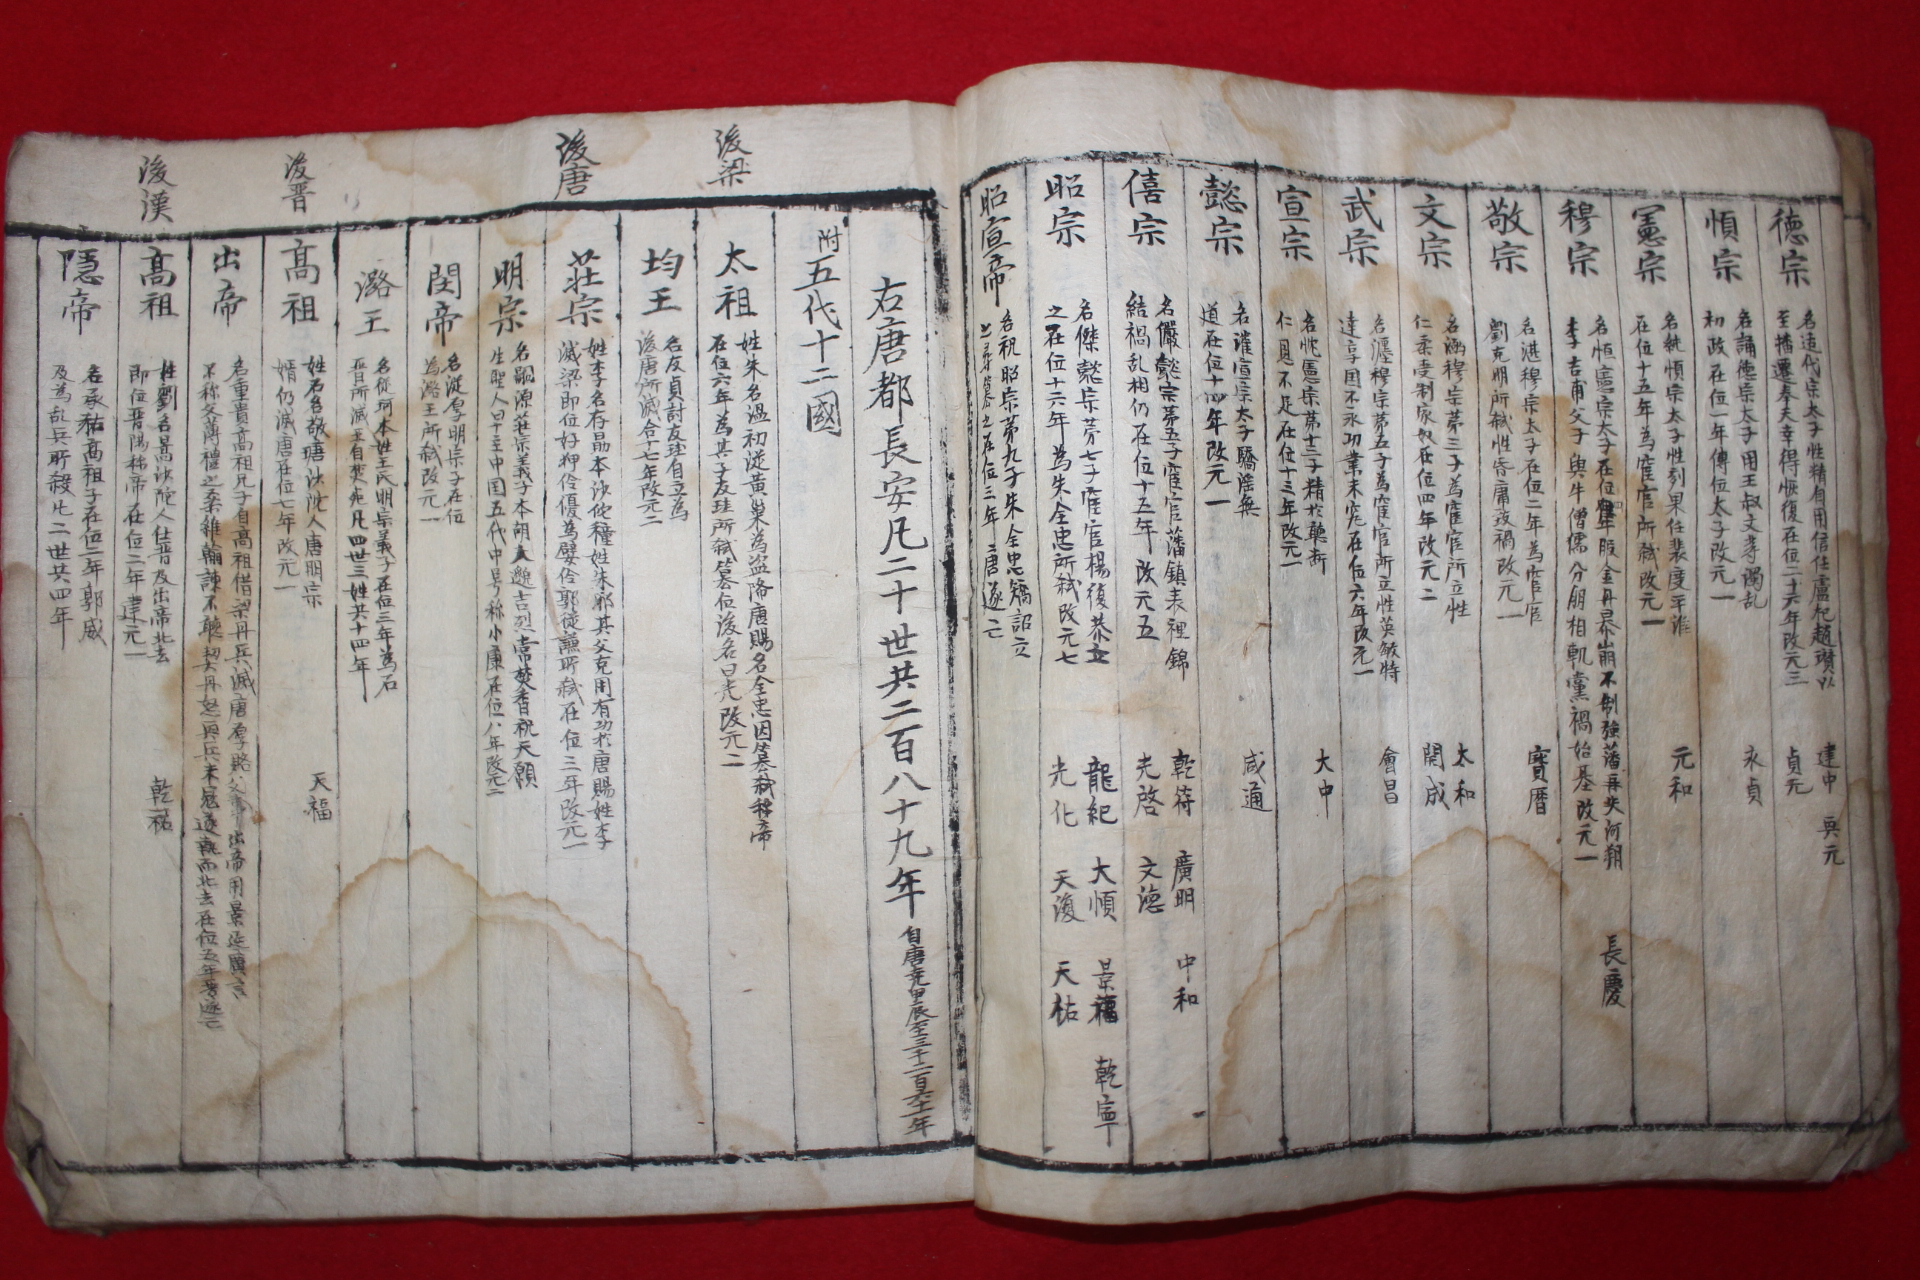 德宗
名适代宗太子性精自用信任盧杞趙瓚以
至播遷奉天幸得恢復在位二十六年改元三
建中 興元
貞元
順宗
名誦德宗太子用王叔文等濁乱
初政在位一年傳位太子改元一
永貞
憲宗
名純順宗太子性剛果任裴度平淮
在位十五年為宦官所弑改元一
元和
穆宗
名恒憲宗太子在位四年服金丹暴崩不制強藩再失河朔
李吉甫父子與牛僧儒分朋相軋黨禍始基改元一
長慶
敬宗
名湛穆宗太子在位二年為宦官
劉克明所弑性昏庸致禍改元一
寶曆
文宗
名涵穆宗第二子為宦官所立性
仁柔受制家奴在位四年改元二
太和
開成
武宗
名瀍穆宗第五子為宦官所立性英敏特
達享国不永功業未究在位六年改元一
會昌
宣宗
名忱憲宗第十三子精於聽断
仁恩不足在位十三年改元一
大中
懿宗
名漼宣宗太子驕淫無
道在位十四年改元一
咸通
僖宗
名儼懿宗第五子宦官藩鎮表裡錦
結禍乱相仍在位十五年 改元五
乾符 廣明 中和
光啓 文德
昭宗
名傑懿宗第七子宦官楊復恭立
之在位十六年為朱全忠所弑改元七
龍紀 大順 景福 乾寧
光化 天復 天祐
昭宣帝
名祝昭宗第九子朱全忠矯詔立
之尋簒之在位三年唐遂亡
右唐都長安凡二十世共二百八十九年
附五代十二國
後梁
太祖
姓朱名温初從黄巢為盗降唐賜名全忠因簒弑稱帝
在位六年為其子友珪所弑簒位後名曰晃改元二
均王
名友貞討友珪自立為
後唐所滅合七年改元二
後唐
莊宗
姓李名存勗本沙佗種姓朱邪其父克用有功於唐賜姓李
滅梁即位好狎伶優為嬖伶郭從謙所弑在位三年改元一
明宗
名嗣源莊宗義子本胡人邈吉烈常焚香祝天願
生聖人早主中国五代中号称小康在位八年改元二
閔帝
名從厚明宗子在位
為潞王所弑改元一
潞王
名從珂本姓王氏明宗義子在位三年為石
晋所滅王自焚死凡四世三姓共十四年
後晋
高祖
姓石名敬瑭沙沱人唐明宗
婿仍滅唐在位七年改元一
天福
出帝
名重貴高祖兄子自高祖借契丹兵滅唐
後漢
高祖
姓劉名暠沙陀人仕晋及出帝北去
即位晋陽称帝在位二年建元一
乾祐
隱帝
名承祐高祖子在位二年郭威
及為乱兵所殺凡二世共四年